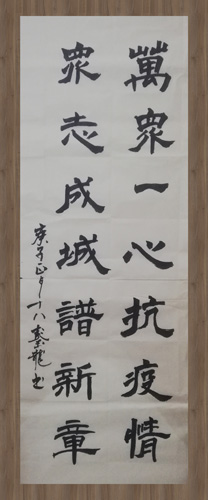 萬眾一心抗疫情
眾志成城譜新章
庚子正月十八秦龍书